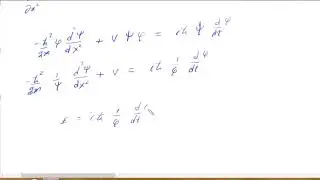 ∂x²
-ħ²/2m φ d²ψ/dx² + V ψ φ = iħ ψ dφ/dt
-ħ²/2m 1/ψ d²ψ/dx² + V = iħ 1/φ dφ/dt
E = iħ 1/φ d